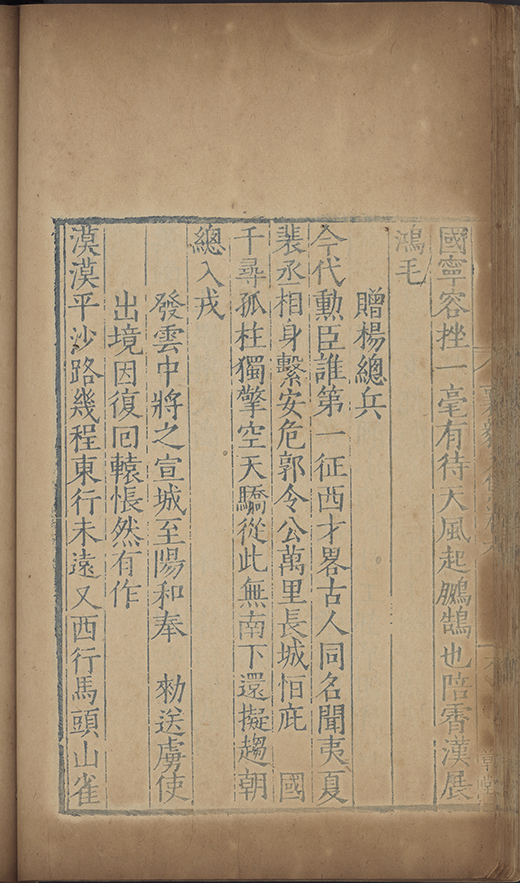 國寧容挫一毫有待天風起鵬鵠也陪霄漢展
鴻毛
贈楊總兵
今代勳臣誰第一征西才畧古人同名聞夷夏
裴丞相身繫安危郭令公萬里長城怕庇 國
千尋孤柱獨擎空天驕從此無南下還擬趨朝
總入戎
發雲中將之宣城至陽和奉 勑送虜使
出境因復回轅悵然有作
漠漠平沙路幾程東行未遠又西行馬頭山雀